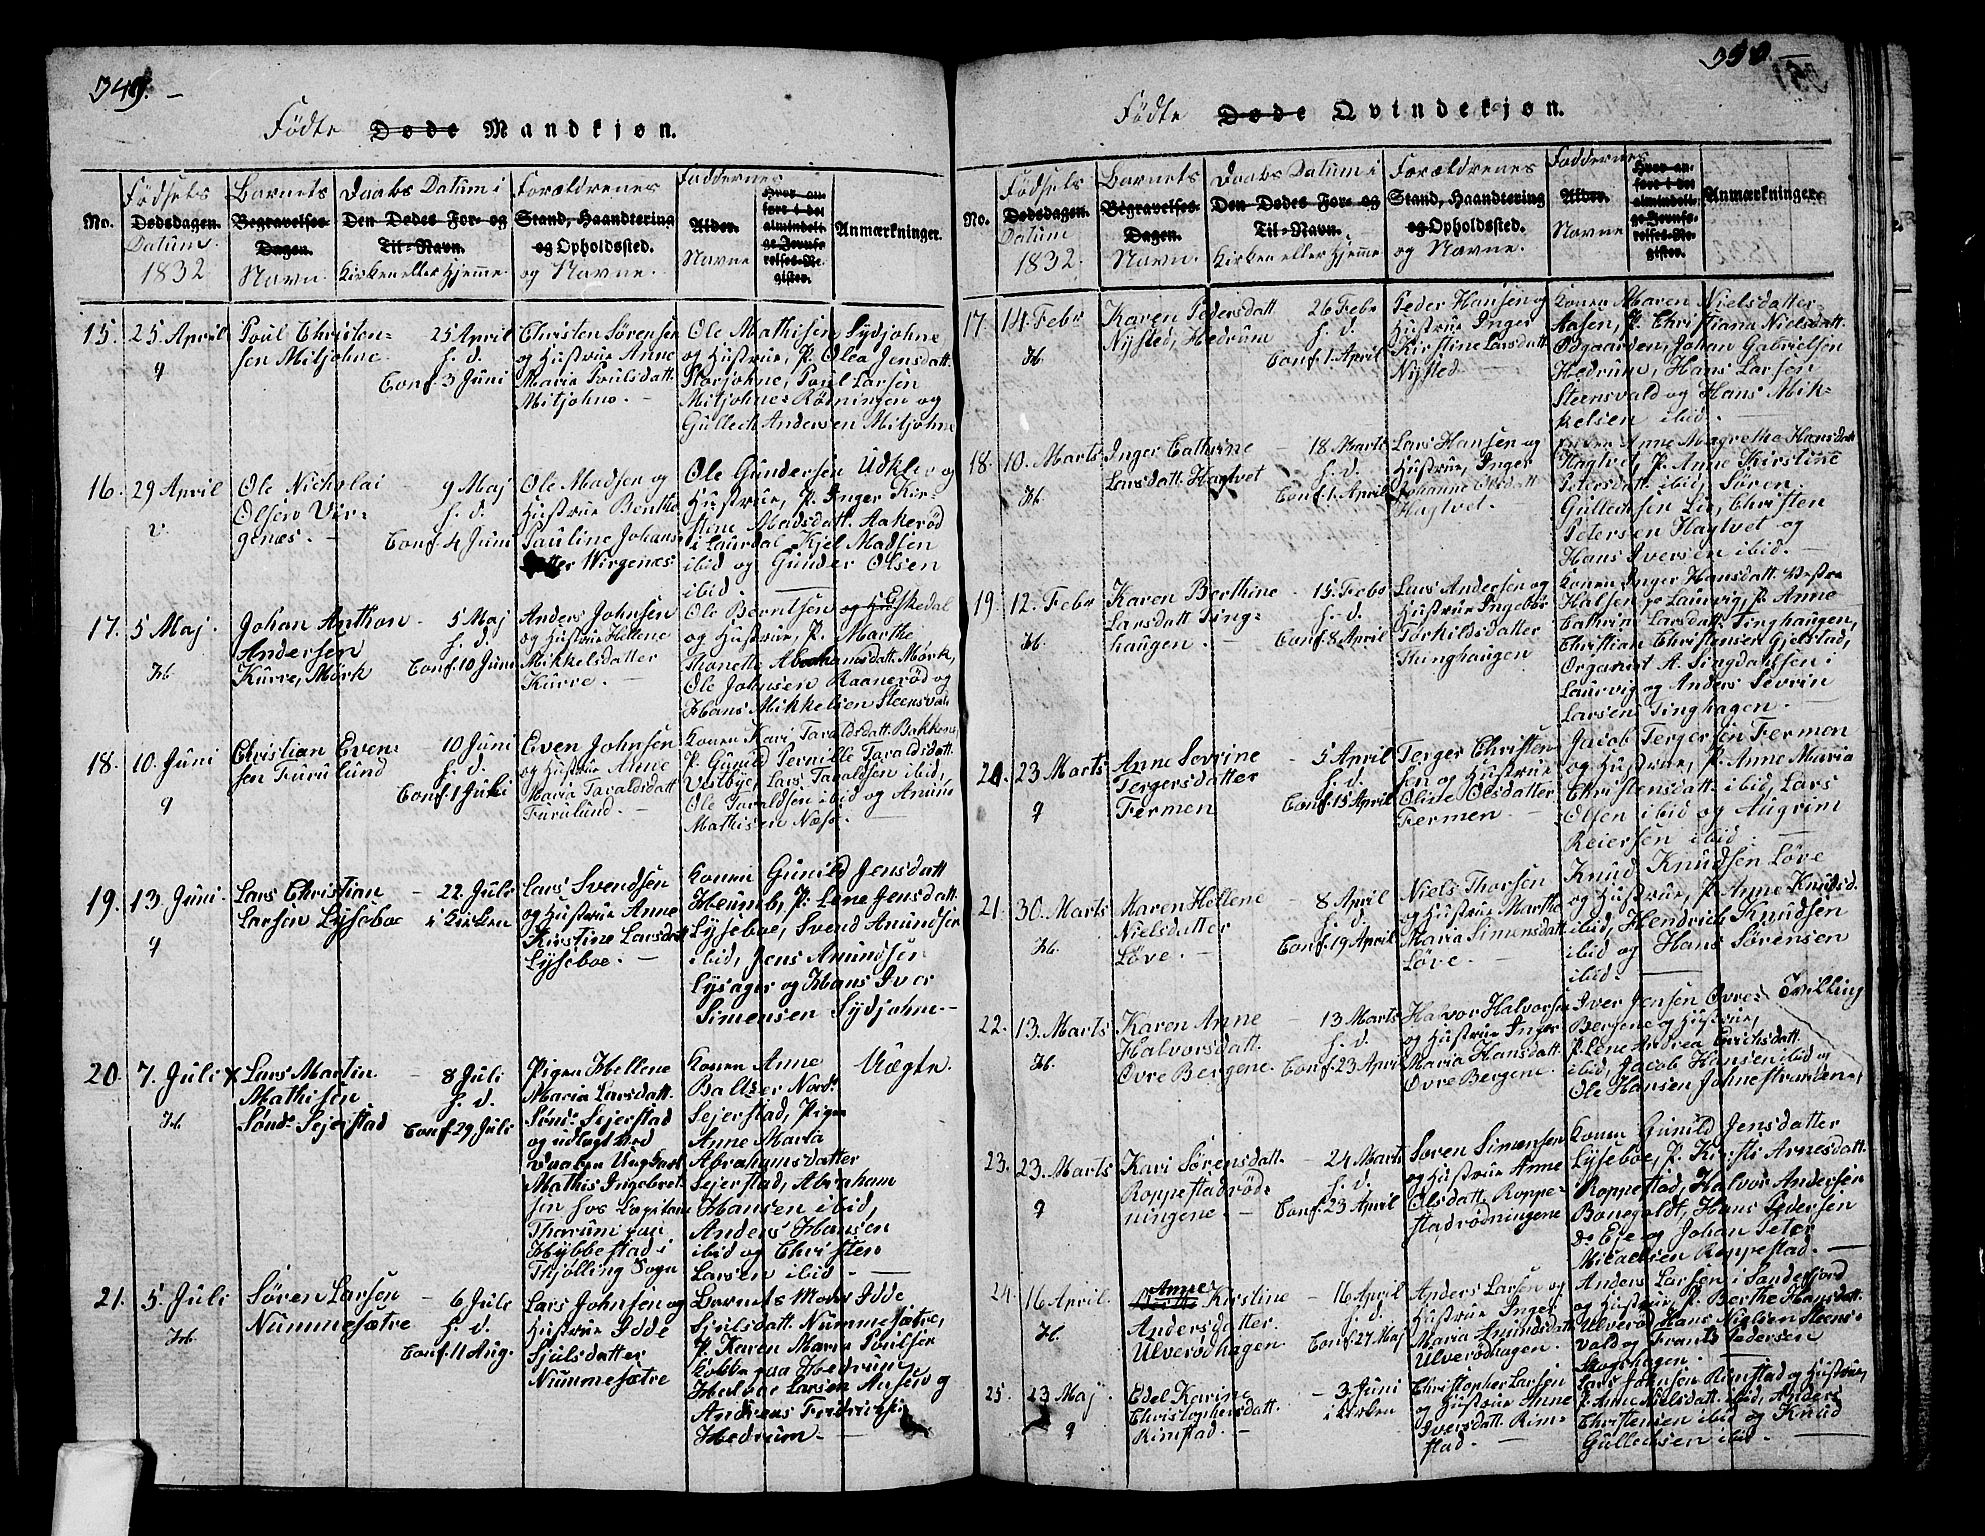 349.
Fødte Døde Mandkjøn.
No.
Fødsels Dødsdagen. Datum. 1832
Barnets Begravelses-Dagen. Navn.
Daabs Datum i Den Dødes For- og Til-Navn. Kirken eller Hjemme
Forældrenes Stand, Haandtering og Opholdssted. og Navne.
Faddernes Alder. Navne
Hvor anført i det almindelige Jevnførelses-Register.
Anmærkninger.
15. 25 April
q
Poul Christen-
sen Mitjohne
25 April
h. d.
Conf. 3 Juni
Christen Sørensen
og Hustrue Anne
Maria Poulsdatt.
Mitjohne. —
Ole Mathisen Sydjohne
og Hustrue, P. Olea Jensdatt.
Storjohne, Poul Larsen
Mitjohne Rønningen og
Gullech Andersen Mitjohne
16. 29 April
v.
Ole Nicholai
Olsen Vir-
genæs. —
9 Maj
h. d.
Conf. 4 Juni
Ole Madsen og
Hustrue Benthe
Pauline Johans-
datter Wirgenæs
Ole Gundersen Udklev og
Hustrue, P. Inger Kir-
stine Madsdatt. Aakerød
i Laurdal Kjel Madsen
ibid og Gunder Olsen
ibid. —
17. 5 Maj.
Hb.
Johan Anthon
Andersen
Kurre, Mørk
5 Maj
h. d.
Conf. 10 Juni
Anders Johnsen
og Hustrue Hellene
Mikkelsdatter
Kurre. —
Ole Berntsen Eskedal
og Hustrue, P. Marthe
Thonette Abrahamsdatt. Mørk,
Ole Johnsen Raanerød og
Hans Mikkelsen Steensvald
18. 10. Juni
q
Christian Even-
sen Furulund
10 Juni
h. d.
Conf. 1 Juli
Even Johnsen
og Hustrue Anne
Maria Taraldsdatt
Furulund. —
Konen Kari Taraldsdatt. Bakken,
P. Gunild Pernille Taraldsdatt.
Vestbye, Lars Taraldsen ibid,
Ole Taraldsen ibid og Anun
Mathisen Næss. —
19. 13. Juni
q
Lars Christian
Larsen Lyseboe
22 Juli
i Kirken
Lars Svendsen
og Hustrue Anne
Kirstine Larsdatt
Lyseboe. —
Konen Gunild Jensdatt
Heumb, P. Lene Jensdatt.
Lyseboe, Svend Amundsen
ibid, Jens Amundsen
Lysager og Hans Iver
Simensen Sydjohne —
20. 7. Juli
Hb.
x Lars Martin
Mathisen
Sønd. Sejerstad
8 Juli
h. d.
Conf. 29 Juli
Pigen Hellene
Maria Larsdatt.
Sønd. Sejerstad
og udlagt ved
Daaben Ungkarl
Mathis Ingebret-
sen hos Capitain
Tharum paa
Hybbestad i
Thjølling Sogn
Konen Anne
Baltzer Nord.
Sejerstad, Pigen
Anne Maria
Abrahamsdatter
Sejerstad, Abraham
Hansen ibid,
Anders Hansen
ibid og Christen
Larsen ibid. —
Uægte.
21. 5. Juli
Hb.
Søren Larsen
Nummesætre
6 Juli
h. d.
Conf. 11 Aug.
Lars Johnsen og
Hustrue Idde
Sjulsdatter
Nummesætre
Barnets Moder Idde
Sjulsdatt. Nummesætre,
P. Karen Maria Poulsen
Kobbe paa Hedrum
Halvor Larsen Aasen og
Andreas Fredrichs
Hedrum. —
350.
Fødte Døde Qvindekjøn.
No.
Fødsels Dødsdagen. Datum 1832.
Barnets Begravelses-Dagen. Navn.
Daabs Datum i Den Dødes For- og Til-Navn. Kirken eller Hjemme
Forældrenes Stand, Haandtering og Opholdssted. og Navne.
Faddernes Alder. Navne
Hvor anført i det almindelige Jevnførelses-Register.
Anmærkninger.
17. 14 Febr
Hb.
Karen Pedersdatt
Nysted, Hedrum
26 Febr
h. d.
Conf. 1. April
Peder Hansen og
Hustrue Inger
Kirstine Larsdatt
Nysted —
Konen Maren Nielsdatter
Aasen, P. Christiana Nielsdatt.
Odgaarden, Johan Gabrielsen
Hedrum, Hans Larsen
Steensvald og Hans Mik-
kelsen ibid. —
18. 10. Marts
Hb.
Inger Cathrine
Larsdatt. Hagtvet
18 Marts
h. d.
Conf. 1. April
Lars Hansen og
Hustrue, Inger
Johanne Olsdatt
Hagtvet. —
Konen Anne Magrethe Hansdatt
Hagtvet, P. Anne Kirstine
Petersdatt. ibid, Søren
Gullechsen Lie, Christen
Petersen Hagtvet og
Hans Iversen ibid. —
19. 12. Febr
Hb.
Karen Berthine
Larsdatt Ting-
haugen. —
15. Febr
h. d.
Conf. 8 April
Lars Andersen og
Hustrue Ingebor
Torkildsdatter
Thinghaugen
Konen Inger Hansdatt. Vestre
Halsen pr Laurvig, P. Anne
Cathrine Larsdatt. Tinghaugen,
Christian Christensen Gjelstad,
Organist A. Tingdahlsen i
Laurvig og Anders Sevrin
Larsen Tinghagen. —
20. 23 Marts
q
Anne Sevrine
Tergersdatter
Fermen
5 April
h. d.
Conf. 15 April
Terger Christen-
sen og Hustrue
Olive Olsdatter
Fermen —
Jacob Tergersen Fermen
og Hustrue, P. Anne Maria
Christensdatt. ibid, Lars
Olsen ibid og Augrim
Reiersen ibid. —
21. 30. Marts
Hb.
Maren Hellene
Nielsdatter
Løve. —
8 April
h. d.
Conf. 19 April
Niels Thorsen
og Hustrue Marthe
Maria Simensdatt
Løve. —
Knud Knudsen Løve
og Hustrue, P. Anne Knudsd.
ibid, Hendrich Knudsen
ibid og Hans Sørensen
ibid. —
22. 13. Marts
Hb.
Karen Anne
Halvorsdatt.
Øvre Bergene.
13 Marts
h. d.
Conf. 23 April
Halvor Halvorsen
og Hustrue Inger
Maria Hansdatt.
Øvre Bergene.
Iver Jensen Øvre
Bergene og Hustrue,
P. Lene Andrea Erichsdatt.
ibid, Jacob Hansen ibid og
Ole Hansen Johnestranden,
Tvilling
23. 23. Marts
q
Kari Sørensdatt.
Roppestadrød-
ningene. —
24 Marts
h. d.
Conf. 23 April
Søren Simensen
og Hustrue Anne
Olsdatt. Roppe-
stadrødningene
Konen Gunild Jensdatter
Lyseboe, P. Kirsti Arnesdatt.
Roppestad, Halvor Andersen
Bonegoldt, Hans Pedersen
Do Eje og Johan Peter
Micaelsen Roppestad. —
24. 16 April.
Hb.
Anne Kirstine
Andersdatter.
Ulverødhagen
16 April
h. d.
Conf. 27 Maj
Anders Larsen og
Hustrue Inger
Maria Amundsdatt
Ulverødhagen.
Anders Larsen i Sandefjord
og Hustrue, P. Berthe Hansdatt.
Ulverød Hans Nielsen Steens-
vald og Frants Pedersen
Skogshagen. —
25. 23 Maj
q
Edel Karine
Christophersdatt.
Rimstad. —
3 Juni
i Kirken
Christopher Larsen
og Hustrue Anne
Iversdatt. Rim-
stad. —
Lars Johnsen Rimstad og Hustrue,
P. Anne Nielsdatt. ibid, Anders
Christensen ibid og Knud
Gullechsen ibid. —